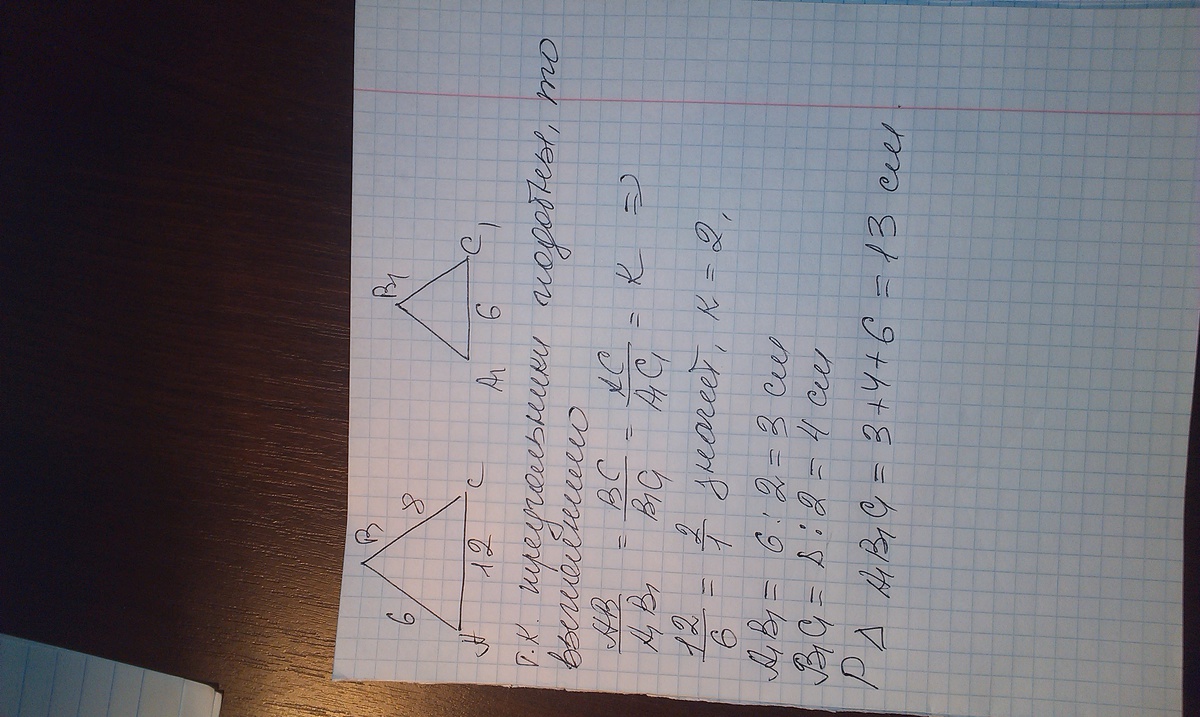 B B₁
6 8
A 12 C A₁ 6 C₁
т.к. треугольники подобны, то
выполнимо
AB/A₁B₁ = BC/B₁C₁ = AC/A₁C₁ = K ⇒
12/6 = 2/1 значит, K = 2,
A₁B₁ = 6 : 2 = 3 см
B₁C₁ = 8 : 2 = 4 см
P △ A₁B₁C₁ = 3 + 4 + 6 = 13 см.